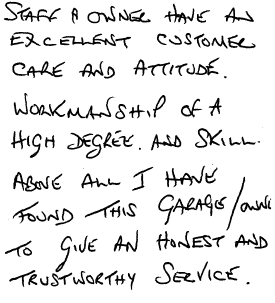 STAFF & OWNER HAVE AN
EXCELLENT CUSTOMER
CARE AND ATTITUDE.
WORKMANSHIP OF A
HIGH DEGREE. AND SKILL.
ABOVE ALL I HAVE
FOUND THIS GARAGE/OWNE
TO GIVE AN HONEST AND
TRUSTWORTHY SERVICE.